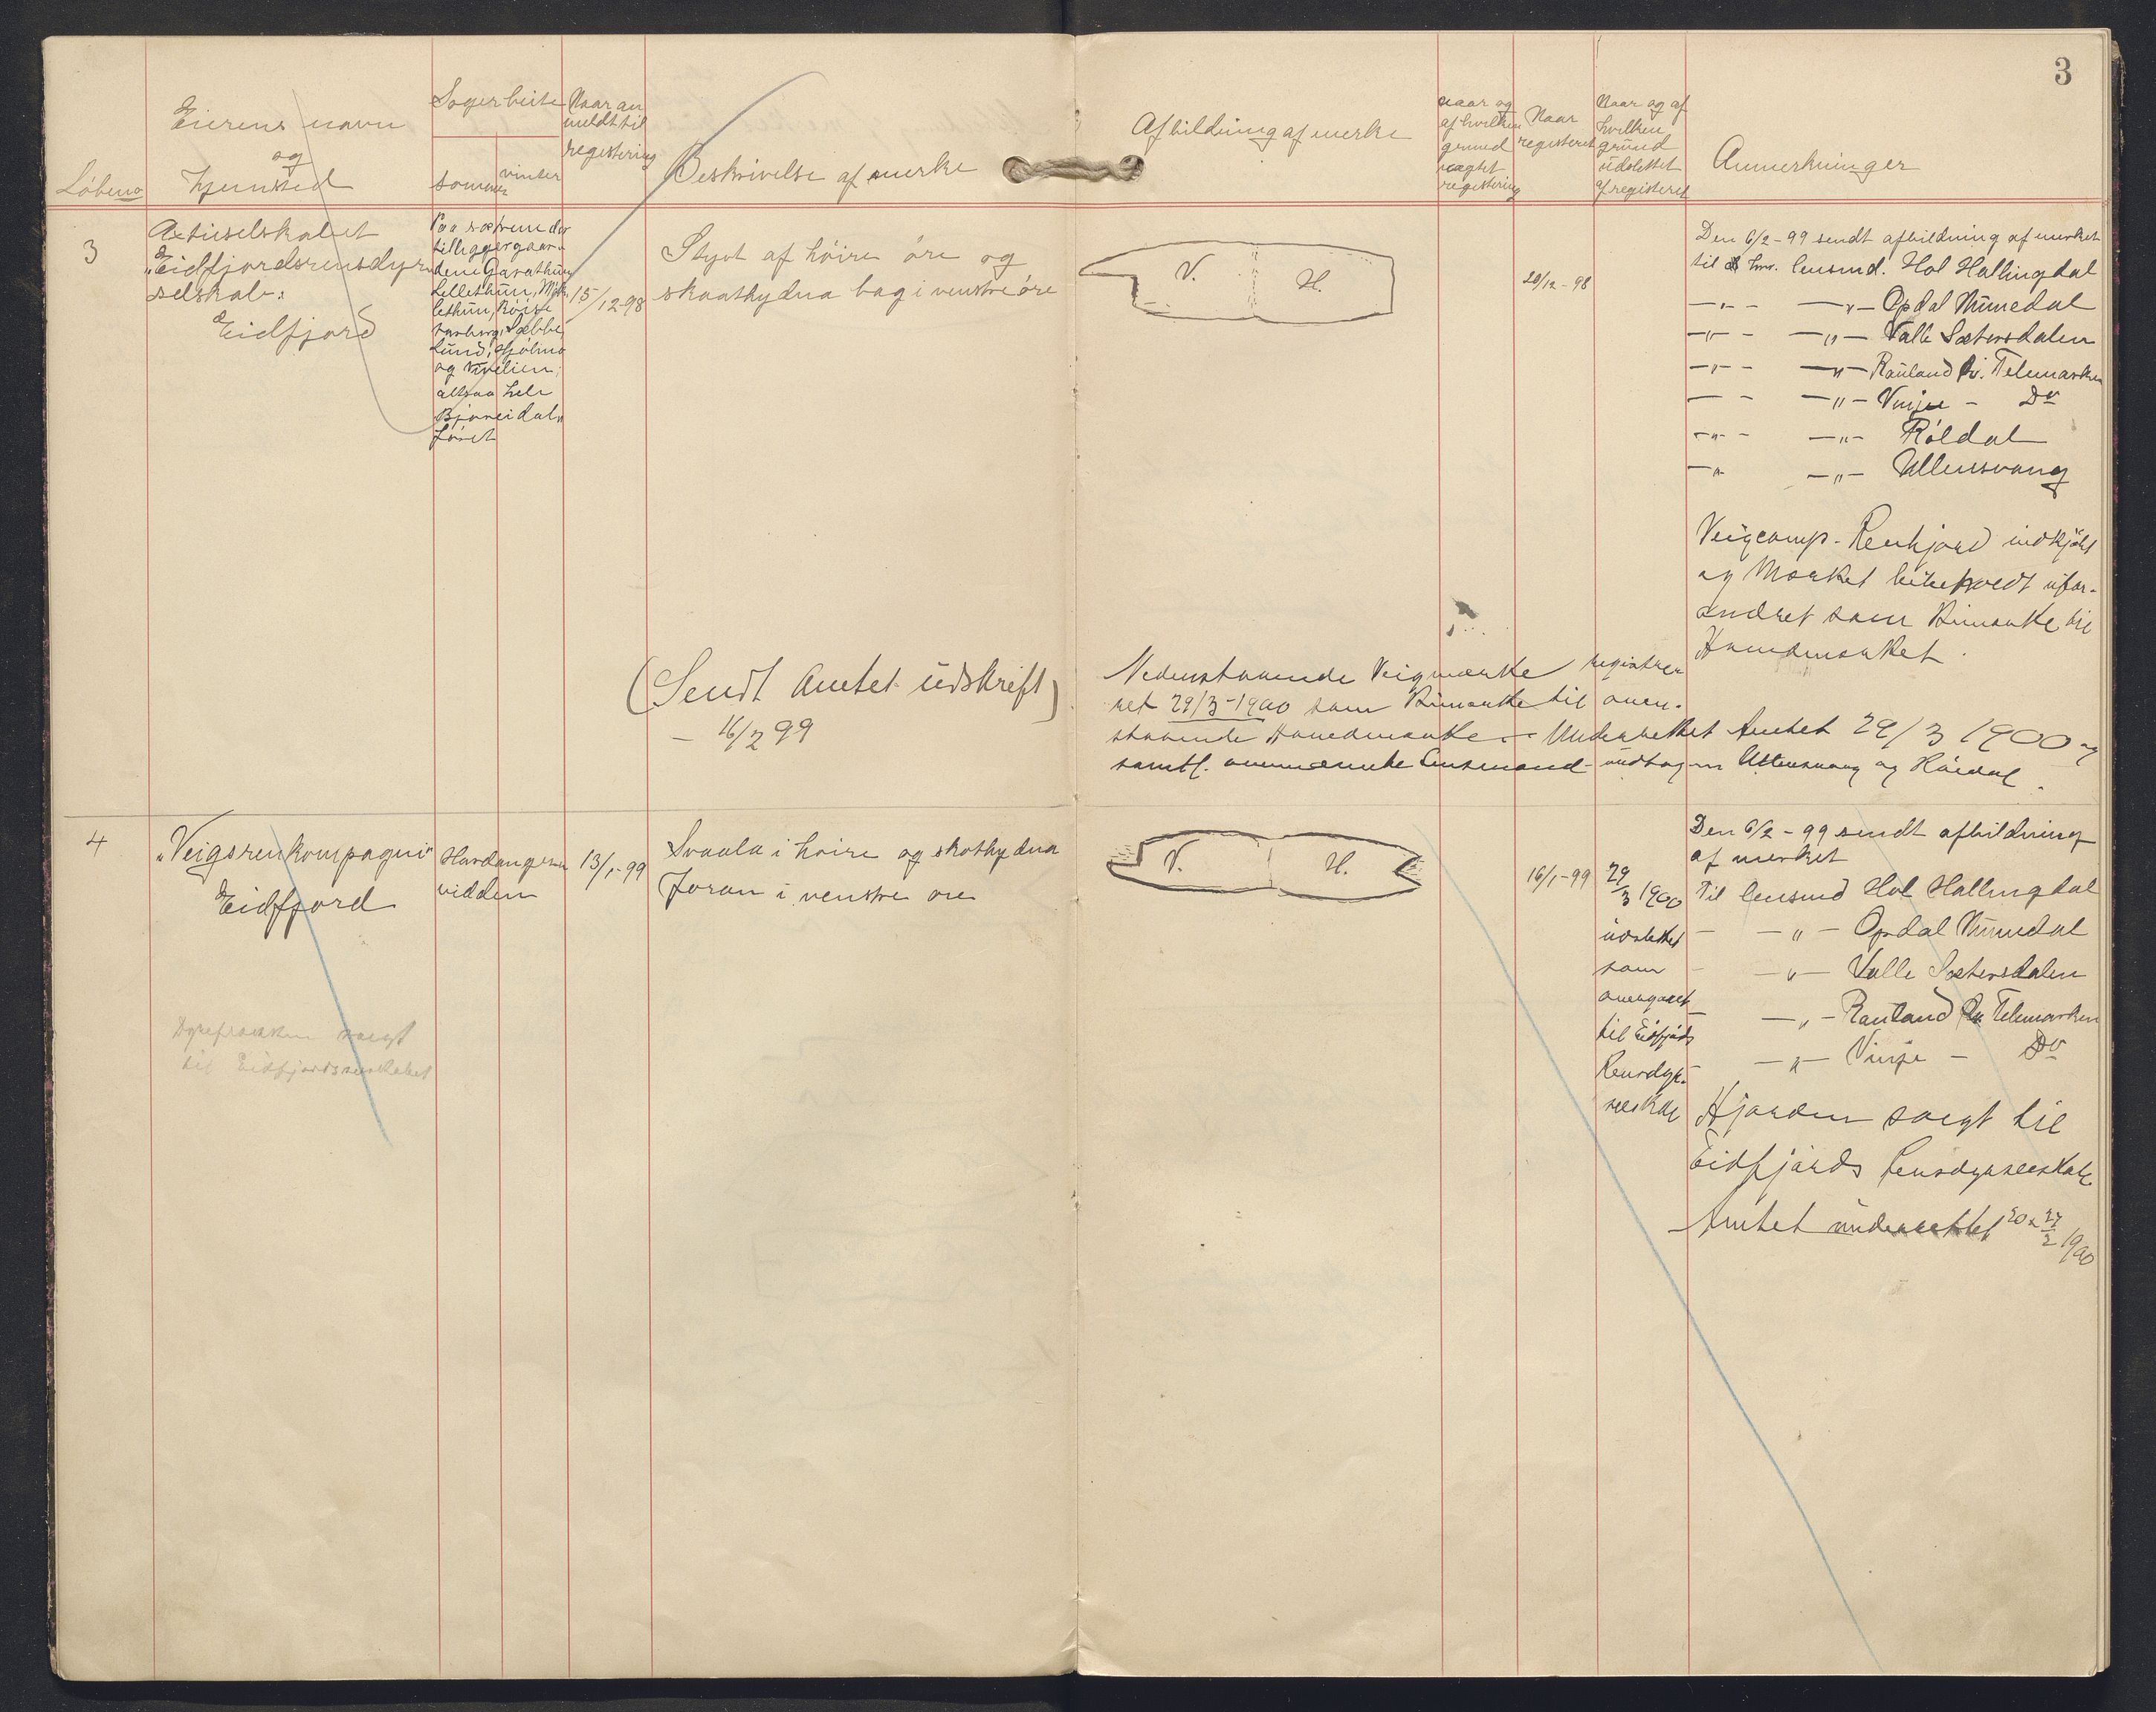 3
Løbeno
Eierens navn
og
hjemsted
Søger beite
sommer
vinter
Naar an
meldt til
registering
Beskrivelse af merke
Afbildning af merke
Naar og
af hvilken
grund
nægtet
registering
Naar
registeret
Naar og af
hvilken
grund
udslettet
af registeret
Anmerkninger
3
Actieselskabet
"Eidfjordsrensdyr
selskab"
Eidfjord
Paa sætrene der
tilligger gaar-
dene Garathun
Lillethun, Mykle
lethun, Røise
Sæbbe
Lund, Hjølmo
og Viveli
altsaa hele
Bjoreidal
føret
15/12-98
Styvt af høire øre og
skaathydna bag i venstre øre
V. H.
20/12-98
Den 6/2-99 sendt afbildning af merket
til hr. lensmd. Hol Hallingdal
—"— —"— Opdal Numedal
—"— —"— Valle Sætersdalen
—"— —"— Rauland Telemarken
— — —"— Vinje — Do
—"— —"— Røldal
—"— —"— Ullensvang
Veigcomp. Renhjord indkjøbt
og Mærket bibeholdt ufor-
andret som Bimærke til
Hovedmærket.
(Sendt Amtet udskrift)
— 16/2 99
Nedenstaaende Veigmærke registre-
ret 29/3-1900 som Bimærke til oven-
staaende Hovedmærke. — Underrettet Amtet 29/3 1900 og
samtl. ovennævnte Lensmænd undtagen Ullensvang og Røldal.
4
"Veigsrenkompagni"
Eidfjord
Hardanger
vidden
13/1-99
Svaala i høire og skothydna
foran i venstre øre
V. H.
16/1-99
29/3 1900
udslettet
som
overgaaet
til Eidfjords
Rensdyr-
selskab
Den 6/2-99 sendt afbildning
af merket
Til lensmd Hol Hallingdal
— —"— Opdal Numedal
— —"— Valle Sætersdalen
— —"— Rauland Telemarken
—"— Vinje — Do
Hjorden solgt til
Eidfjords Rensdyrselskab
Amtet underrettet 1900
Dyreflokken solgt
til Eidfjordsselskabet